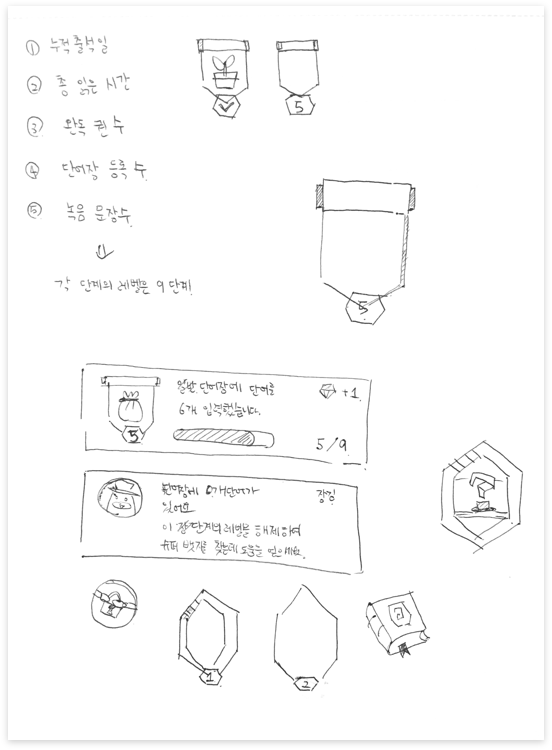 ① 누적 출석일
② 총 읽은 시간
③ 완독 권 수
④ 단어장 등록 수
⑤ 녹음 문장수
각 단계의 레벨은 9단계!
5
5
일반 단어장에 단어를
6개 입력했습니다.
+1
5
5/9
단어장에 0개 단어가
있어요
잠김
이 전 단계의 레벨을 해제하여
슈퍼 뱃지를 찾는데 도움을 얻으세요.
1
2